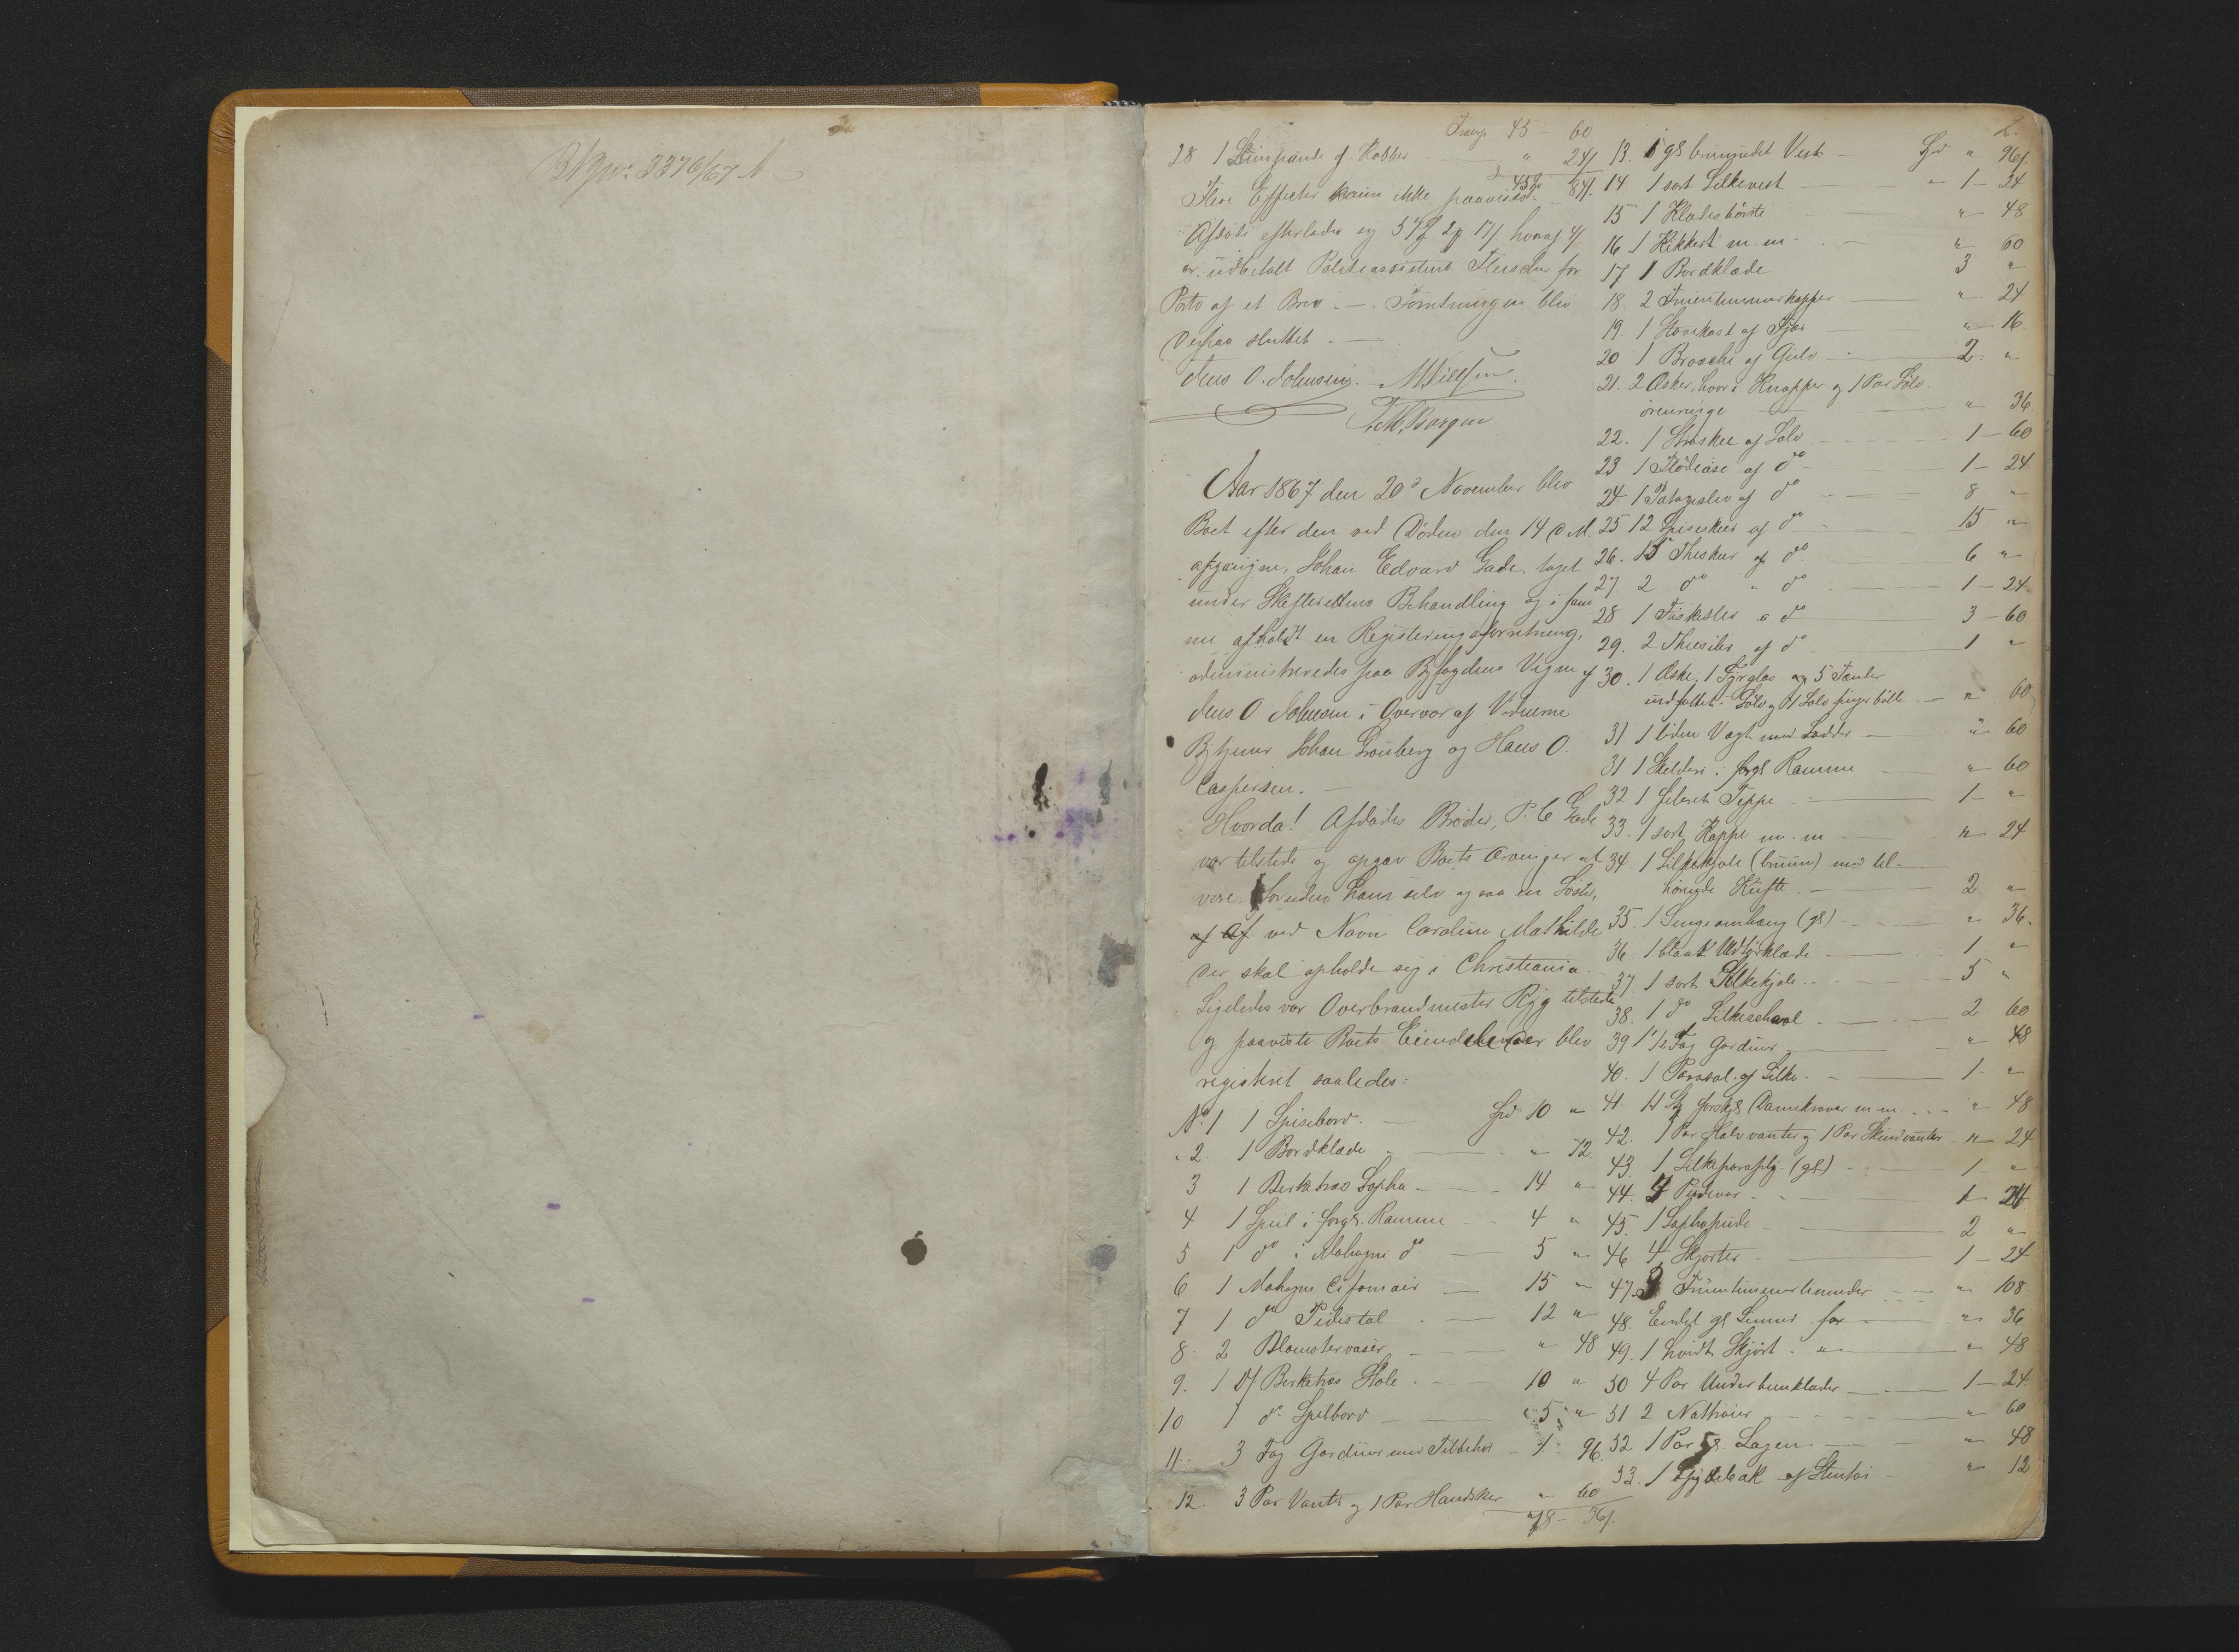 B/Gno: 3376/67 A
2.
Transp. 45 - 60
28 1 Limpande af Kobber " 24/
45 Spd 84/.
Flere Effecter kunn ikke paavises.
Afdøde efterlader sig 57 2 17/ hvoraf 4/
er udbetalt Politieassistent for
Porto af et Brev. — Forretningen blev
derpaa sluttet. —
Jens O. Johnsen. M Nielsen.
Borgen
Aar 1867 den 20d November blev
Boet efter den ved Døden den 14 d M.
afgangne, Johan Edvard Gade, taget
under Skifterettens Behandling og i sam
me afholdt en Registeringsforretning,
administreredes paa Byfogdens Vegne af
Jens O Johnsen i Overvær af Vidnerne
Bytjener Johan Grønberg og Hans O.
Caspersen. —
Hvorda! Afdødes Broder, P. C Gade
var tilstede og opgav Boets Arvinger at
være foruden ham selv ogsaa en Søster,
af Af ved Navn Caroline Mathilde
der skal opholde sig i Christiania. —
Ligeledes var Overbrandmester Ryg tilstede
og paaviste Boets Eiendele der blev
registeret saaledes:
No. 1 1 Spisebord. — Spd 10 "
" 2. 1 Bordklæde — " 72
3 1 Berketræs Sopha — 14 "
4 1 Speil i forg. Ramme 4 "
5 1 do i Mahogni do — 5 "
6 1 Mahogni — 15 "
7 1 do Pidestal — 12 "
8. 2 Blomstervaser — " 48
9. 1 D/ Berketræs Stole. 10 "
10 1 do Spilbord — 5 "
11. 3 Fag Gardiner med Tilbehør — 1 96.
12. 3 Par Vanter og 1 Par Handsker " 60
78 - 36/.
13. 1 gl Vest — Spd " 96/.
14 1 sort Silkevest — " 1 - 24
15 1 Klædesbørste " 48
16 1 Kikkert m. m. — " 60
17 1 Bordklæde 3 "
18. 2 Fruentimmerkapper " 24
19. 1 Støvekost af Fjær " 16
20 1 Brosche af Guld — 2. "
21. 2 Æsker, hvori Knapper og 1 Par Sølv
ørenringe — " 36
22. 1 Strøskee af Sølv — 1 - 60
23 1 Flødeøse af do — 1 - 24
24 1 Potageslev af do — 8 "
25 12 Spiseskeer af do — 15 "
26. 15 Theskeer af do 6 "
27 2 do " do — 1 - 24
28 1 Fiskeslev a do 3 - 60
29. 2 Theesiler af do 1 "
30. 1 Æske, 1 Fyrglas og 5 Tænder
indfattet i Sølv og 1 Sølv fingerbølle — " 60
31 1 liden Vægt med Lodder — " 60
31 1 Skilderi i forgl Ramme — " 60
32 1 Teppe — 1 - "
33. 1 sort Kappe m. m — " 24
34 1 Silkekjole (bruun) med til-
hørende Kufte. — 2 "
35. 1 Sengeomhæng (gl) — " 36.
36 1 blaat Uldtørklæde — 1 "
37. 1 sort Silkekjole — 5 "
38. 1 do Silkeschavl — 2 60
39 1 1/2 Fag Gardiner — " 48
40. 1 Parasol af Silke. — 1 - "
41. 14 Stk forskjl Damekraver m. m. " 48
42. 1 Par Halvvanter og 1 Par Skindvanter " 24
43. 1 Silkeparaply (gl) — 1 - "
44. 4 Pudevar — 1 - 24
45. 1 Sophapude — 2 "
46 4 Skjorter — 1 - 24
47. Fruentimmerlinneder — " 108
48. Endel gl Linned for — " 36
49. 1 hvidt Skjørt " — " 48
50 4 Par Underbeenklæder — 1 - 24
51 2 Nattrøier — " 60
52 1 Par gl Lagen. — " 48
53. 1 Spyttebak af Stentøi — " 12